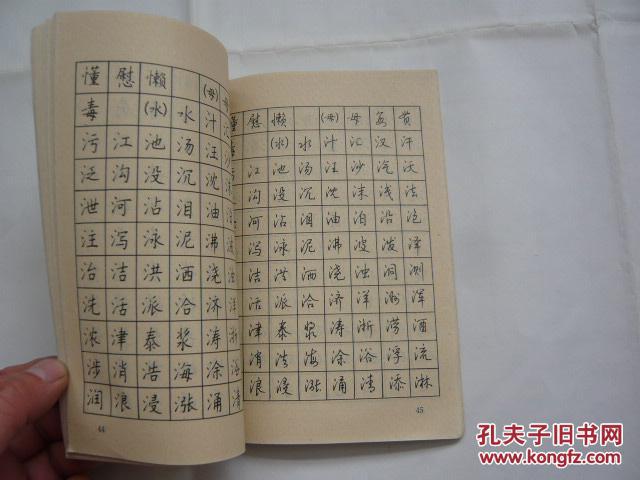 懂 慰 懒 (母)
毒 (水) 水 汁
污 江 池 汤 汪
泛 沟 没 沉 沈
泄 河 沾 泪 油
注 泻 泳 泥 沸
治 洁 洪 洒 浇
洗 活 派 洽 济 洋
浓 津 泰 浆 涛 浙
涉 消 浩 海 涂 浴
润 浪 浸 涨 涌 清
44
慰 懒 (母) 母 每 贯
(水) 水 汁 汇 汉 汗
江 池 汤 汪 沙 汽 沃
沟 没 沉 沈 沫 浅 法
河 沾 泪 油 泊 沿 泡
泻 泳 泥 沸 波 泼 泽
洁 洪 洒 浇 浊 洞 测
活 派 洽 济 洋 洲 浑
津 泰 浆 涛 浙 涝 酒
消 浩 海 涂 浴 浮 流
浪 浸 涨 涌 清 添 淋
45
孔夫子旧书网
www.kongfz.com